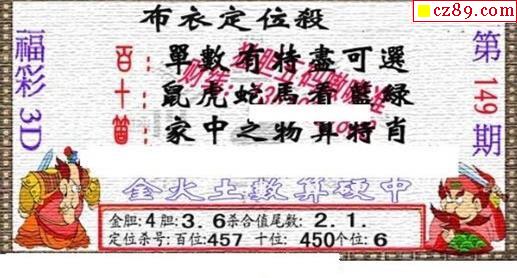 cz89.com
布衣定位殺
福彩3D
百：單數有特盡可選
十：鼠虎蛇馬看藍綠
個：家中之物算特肖
第149期
金火土數算硬中
金胆:4胆:3.6杀合值尾数:2.1.
定位杀号:百位:457 十位: 450个位:6